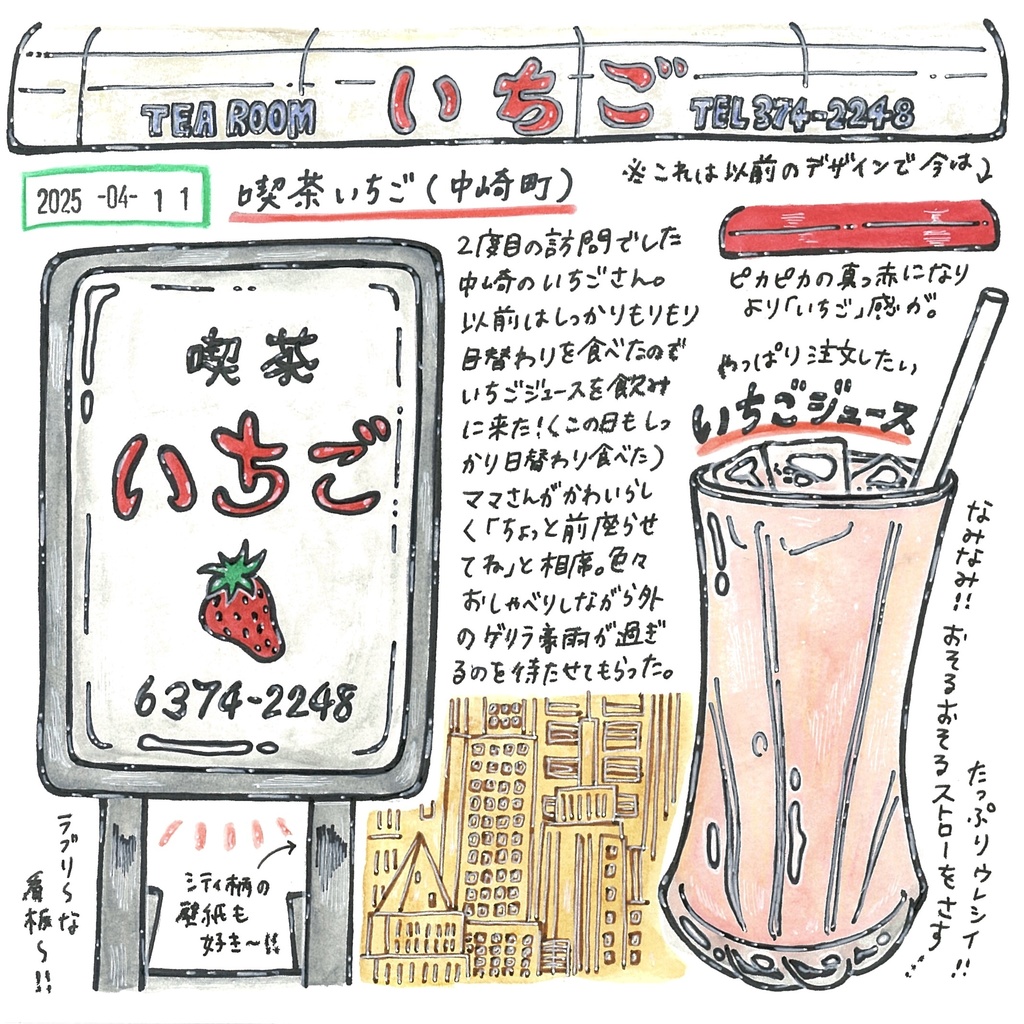 TEA ROOM いちご TEL 374-2248
2025 -04- 11
喫茶いちご(中崎町)
※これは以前のデザインで今は
ピカピカの真っ赤になり
より「いちご」感が。
2度目の訪問でした
中崎のいちごさん。
以前はしっかりもりもり
日替わりを食べたので
いちごジュースを飲み
に来た!(この日もしっ
かり日替わり食べた)
ママさんがかわいらし
く「ちょっと前座らせ
てね」と相席。色々
おしゃべりしながら外
のゲリラ豪雨が過ぎ
るのを待たせてもらった。
喫茶
いちご
6374-2248
ラブリ〜な
看板〜!!
シティ柄の
壁紙も
好き〜!!
やっぱり注文したい
いちごジュース
なみなみ!! おそるおそるストローをさす
たっぷりウレシイ!!